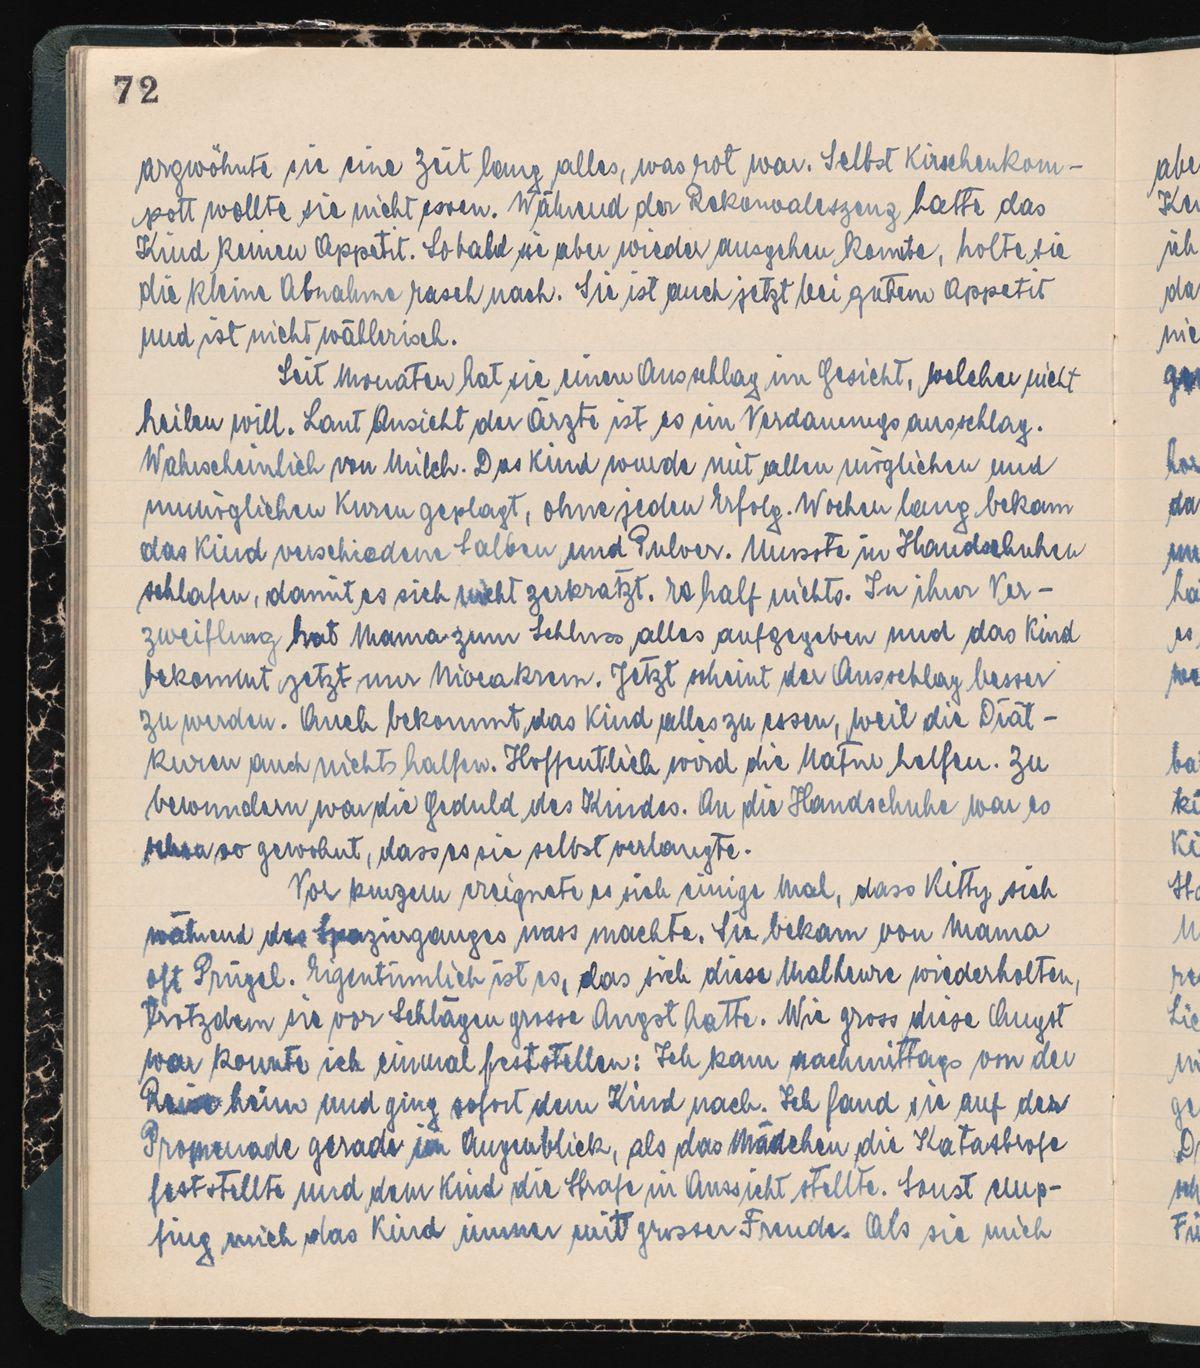 72
argwöhnte sie eine Zeit lang alles, was rot war. Selbst Kirschenkom-
pott wollte sie nicht essen. Während der Rekonvaleszenz hatte das
Kind keinen Appetit. Sobald sie aber wieder ausgehen konnte, holte sie
die kleine Abnahme rasch nach. Sie ist auch jetzt bei gutem Appetit
und ist nicht wählerisch.
Seit Monaten hat sie einen Ausschlag im Gesicht, welcher nicht
heilen will. Laut Ansicht der Ärzte ist es ein Verdauungsausschlag.
Wahrscheinlich von Milch. Das Kind wurde mit allen möglichen und
unmöglichen Kuren geplagt, ohne jeden Erfolg. Wochen lang bekam
das Kind verschiedene Salben und Pulver. Musste in Handschuhen
schlafen, damit es sich nicht zerkratzt. Es half nichts. In ihrer Ver-
zweiflung hat Mama zum Schluss alles aufgegeben und das Kind
bekommt jetzt nur Niveakrem. Jetzt scheint der Ausschlag besser
zu werden. Auch bekommt das Kind alles zu essen, weil die Diät-
kuren auch nichts halfen. Hoffentlich wird die Natur helfen. Zu
bewundern war die Geduld des Kindes. An die Handschuhe war es
schon so gewohnt, dass es sie selbst verlangte.
Vor kurzem ereignete es sich einige Mal, dass Kitty sich
während des Spazierganges nass machte. Sie bekam von Mama
oft Prügel. Eigentümlich ist es, das sich diese Malheure wiederholten,
trotzdem sie vor Schlägen grosse Angst hatte. Wie gross diese Angst
war konnte ich einmal feststellen: Ich kam nachmittags von der
Reise heim und ging sofort dem Kind nach. Ich fand sie auf der
Promenade gerade im Augenblick, als das Mädchen die Katastrofe
feststellte und dem Kind die Strafe in Aussicht stellte. Sonst emp-
fing mich das Kind immer mit grosser Freude. Als sie mich